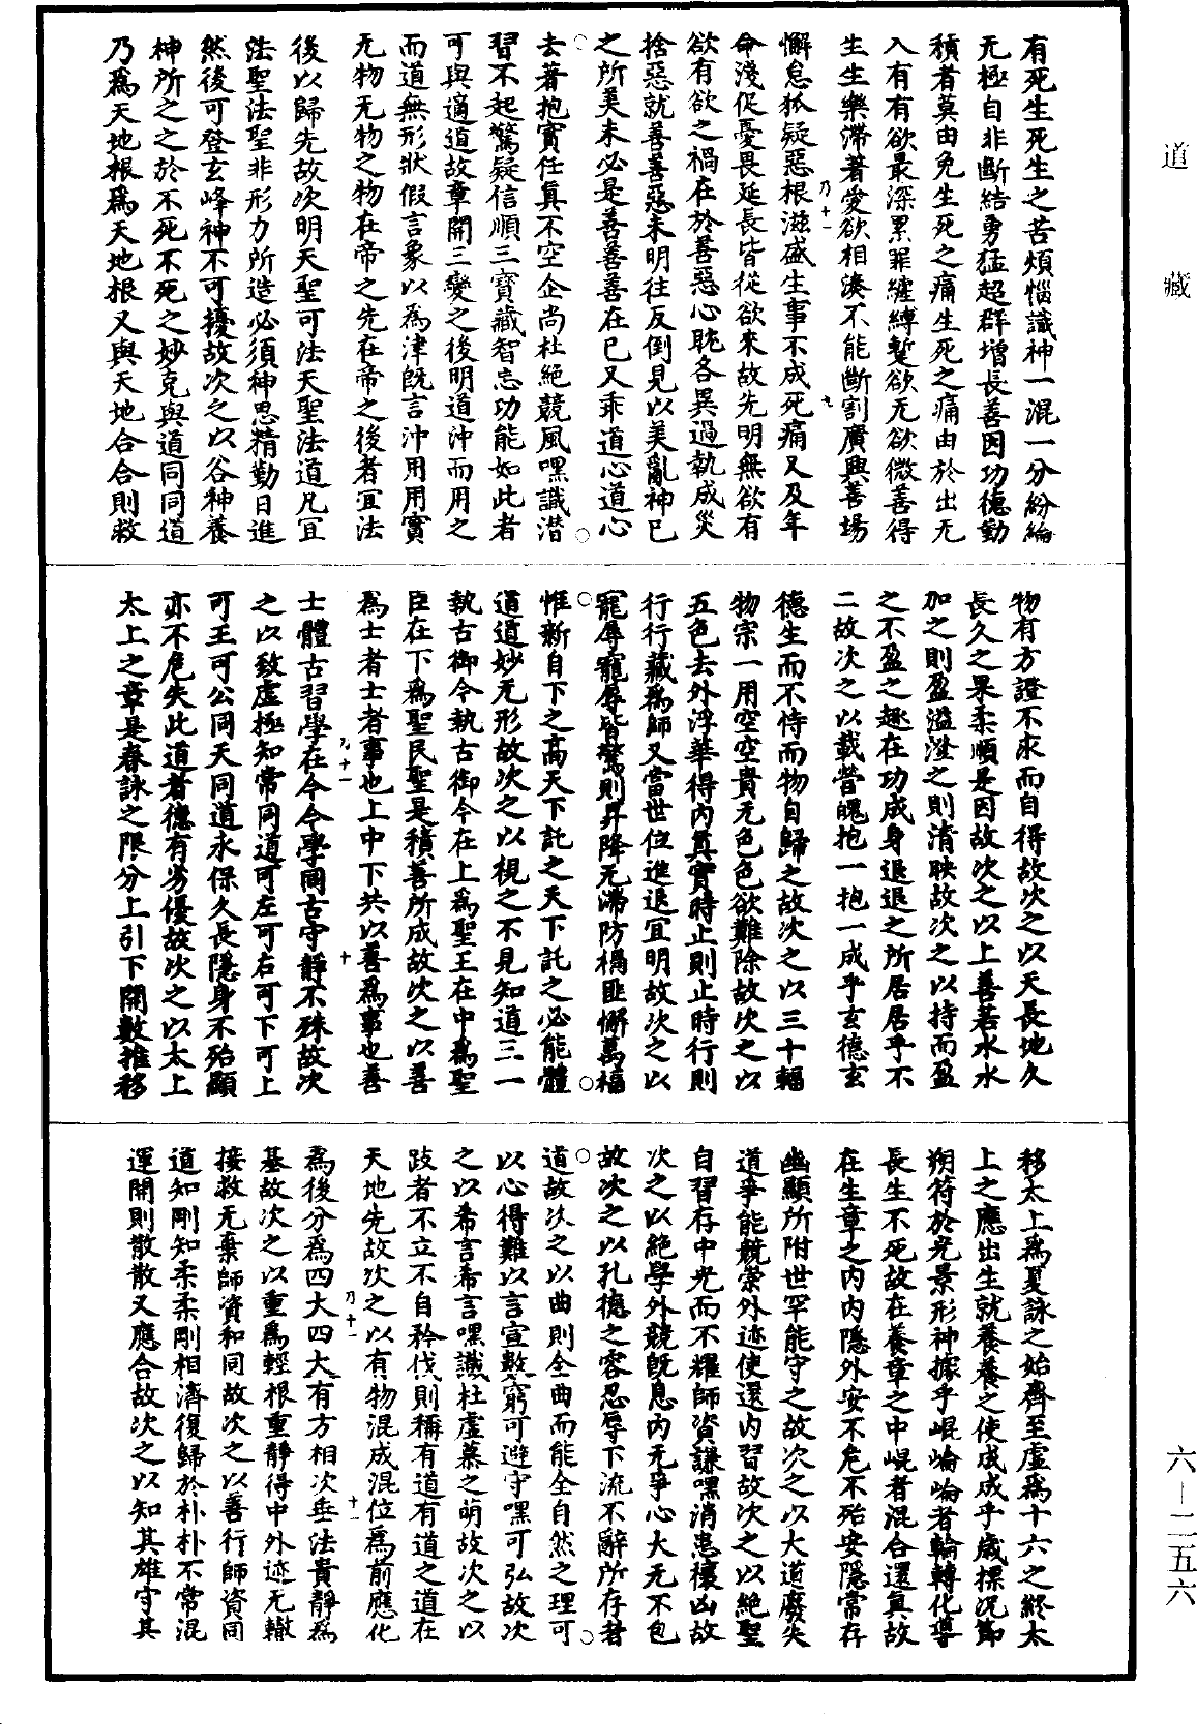 道藏
有死生死生之苦煩惱識神一混一分紛綸
无極自非斷結勇猛超群增長善因功德勤
積者莫由免生死之痛生死之痛由於出无
入有有欲最深累罪纏縛蹔欲无欲微善得
生生樂滯著愛欲相湊不能斷割廣興善場
懈怠狐疑惡根滋盛生事不成死痛又及年
命淺促憂畏延長皆從欲來故先明無欲有
欲有欲之禍在於善惡心眊各異過執成災
捨惡就善善惡未明往反倒見以美亂神已
之所美未必是善善善在已又乖道心道心
去著抱實任真不空企尚杜絕競風嘿識潛
習不起驚疑信順三寶藏智忘功能如此者
可與適道故章開三變之後明道沖而用之
而道無形狀假言象以為津旣言沖用用實
无物无物之物在帝之先在帝之後者宜法
後以歸先故次明天聖可法天聖法道凡宜
法聖法聖非形力所造必須神思精勤日進
然後可登玄峰神不可擾故次之以谷神養
神所之之於不死不死之妙克與道同同道
乃為天地根為天地根又與天地合合則救
物有方證不求而自得故次之以天長地久
長久之果柔順是因故次之以上善若水水
加之則盈溢澄之則清映故次之以持而盈
之不盈之趣在功成身退退之所居居乎不
二故次之以載營魄抱一抱一成乎玄德玄
德生而不恃而物自歸之故次之以三十輻
物宗一用空空貴无色色欲難除故次之以
五色去外浮華得內真實時止則止時行則
行行藏為師又當世位進退宜明故次之以
寵辱寵辱皆驚則昇降无滯防禍匪懈萬福
惟新自下之高天下託之天下託之必能體
道道妙无形故次之以視之不見知道三一
執古御今執古御今在上為聖王在中為聖
臣在下為聖民聖是積善所成故次之以善
為士者士者事也上中下共以善為事也善
士體古習學在今今學同古守靜不殊故次
之以致虛極知常同道可左可右可下可上
可王可公同天同道永保久長隱身不殆顯
亦不危失此道者德有劣優故次之以太上
太上之章是春詠之限分上引下開數推移
移太上為夏詠之始齊至虛為十六之終太
上之應出生就養養之使成成乎歲探況節
朔符於光景形神據乎崐崘崘者輪轉化導
長生不死故在養章之中崐者混合還真故
在生章之內內隱外安不危不殆安隱常存
幽顯所附世罕能守之故次之以大道廢失
道爭能競崇外迹使還內習故次之以絕聖
自習存中光而不耀師資謙嘿消患禳凶故
次之以絕學外競旣息內无爭心大无不包
故次之以孔德之容忍辱下流不辭所存者
道故次之以曲則全曲而能全自然之理可
以心得難以言宣數窮可避守嘿可弘故次
之以希言希言嘿識杜虛慕之萌故次之以
跂者不立不自矜伐則稱有道有道之道在
天地先故次之以有物混成混位為前應化
為後分為四大四大有方相次垂法貴靜為
基故次之以重為輕根重靜得中外迹无轍
接救无棄師資和同故次之以善行師資同
道知剛知柔柔剛相濟復歸於朴朴不常混
運開則散散又應合故次之以知其雄守其
乃十一
九
乃十一
十
乃十一
十一
六－二五六